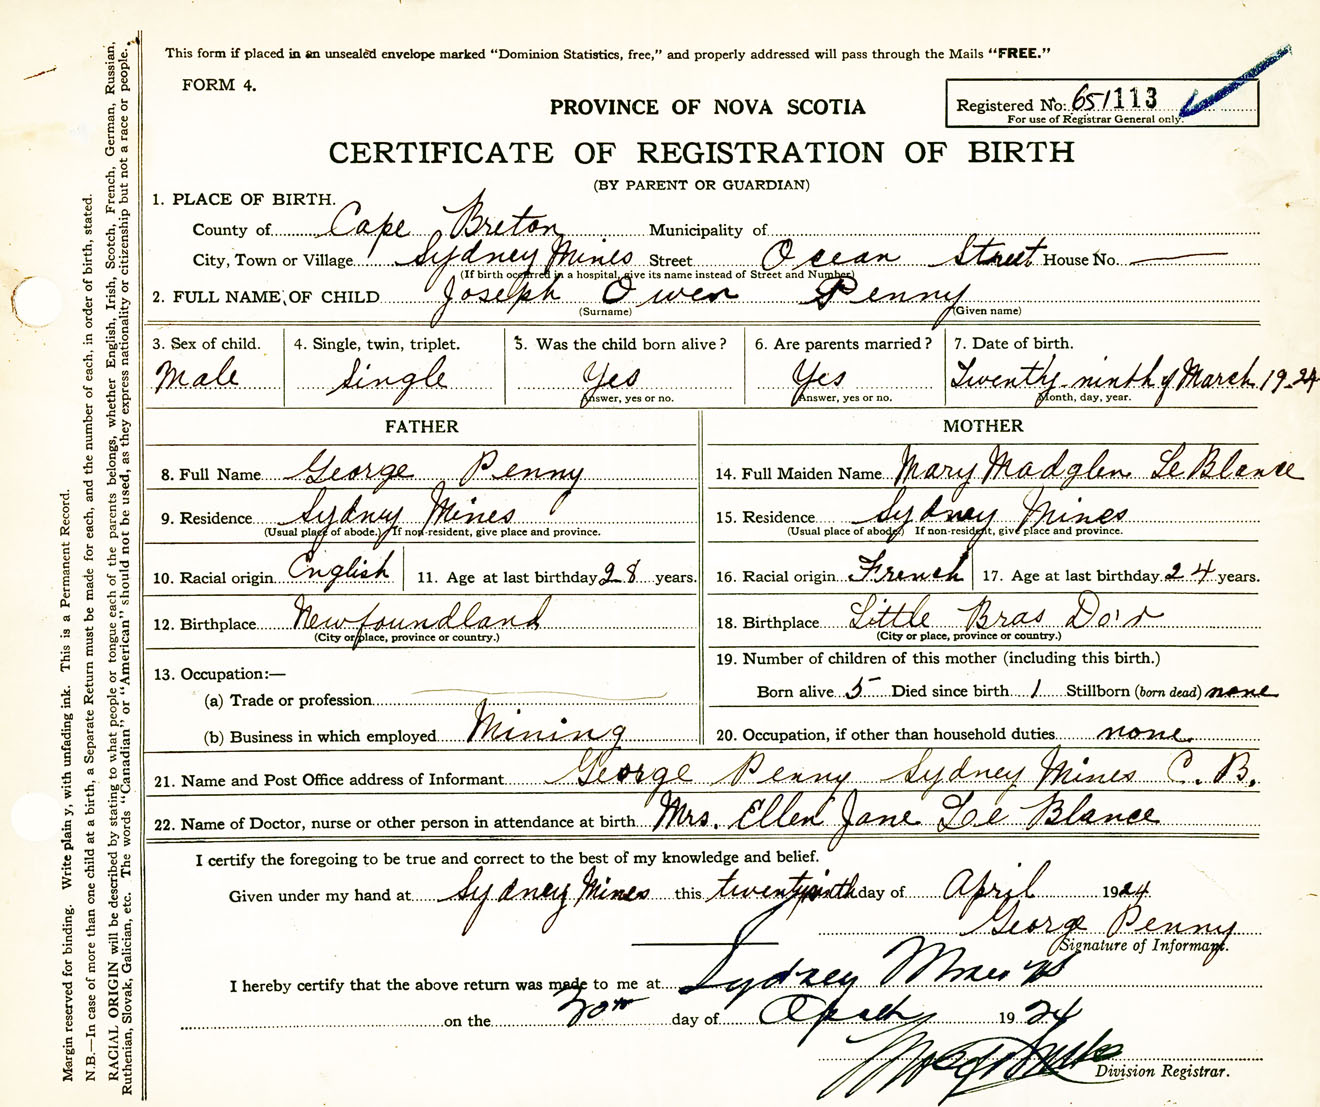 This form if placed in an unsealed envelope marked "Dominion Statistics, free," and properly addressed will pass through the Mails "FREE."
FORM 4.
Registered No. 651113
For use of Registrar General only.
PROVINCE OF NOVA SCOTIA
CERTIFICATE OF REGISTRATION OF BIRTH
(BY PARENT OR GUARDIAN)
1. PLACE OF BIRTH.
County of Cape Breton Municipality of
City, Town or Village Sydney Mines Street Ocean Street House No. —
(If birth occurred in a hospital, give its name instead of Street and Number)
2. FULL NAME OF CHILD Joseph Owen Penny
(Surname) (Given name)
3. Sex of child. 4. Single, twin, triplet. 5. Was the child born alive? 6. Are parents married? 7. Date of birth.
Male Single Yes Yes Twenty-ninth of March 1924
Answer, yes or no. Answer, yes or no. Month, day, year.
FATHER MOTHER
8. Full Name George Penny 14. Full Maiden Name Mary Madglen Le Blance
9. Residence Sydney Mines 15. Residence Sydney Mines
(Usual place of abode.) If non-resident, give place and province. (Usual place of abode) If non-resident, give place and province.
10. Racial origin English 11. Age at last birthday 28 years. 16. Racial origin French 17. Age at last birthday 24 years.
12. Birthplace Newfoundland 18. Birthplace Little Bras Do'r
(City or place, province or country.) (City or place, province or country.)
13. Occupation:— 19. Number of children of this mother (including this birth.)
(a) Trade or profession Born alive 5 Died since birth 1 Stillborn (born dead) none
(b) Business in which employed Mining 20. Occupation, if other than household duties none
21. Name and Post Office address of Informant George Penny Sydney Mines C. B.
22. Name of Doctor, nurse or other person in attendance at birth Mrs. Ellen Jane Le Blance
I certify the foregoing to be true and correct to the best of my knowledge and belief.
Given under my hand at Sydney Mines this day of April 1924
George Penny
Signature of Informant.
I hereby certify that the above return was made to me at Sydney Mines
on the day of 1924
Division Registrar.
Margin reserved for binding. Write plainly, with unfading ink. This is a Permanent Record.
N.B.—In case of more than one child at a birth, a Separate Return must be made for each, and the number of each, in order of birth, stated.
RACIAL ORIGIN will be described by stating to what people or tongue each of the parents belongs, whether English, Irish, Scotch, French, German, Russian,
Ruthenian, Slovak, Galician, etc. The words "Canadian" or "American" should not be used, as they express nationality or citizenship but not a race or people.